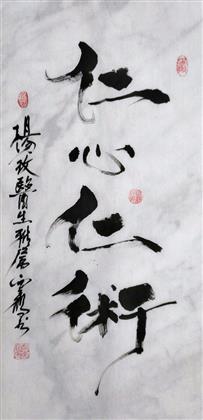 仁心仁術
楊牧醫生雅屬